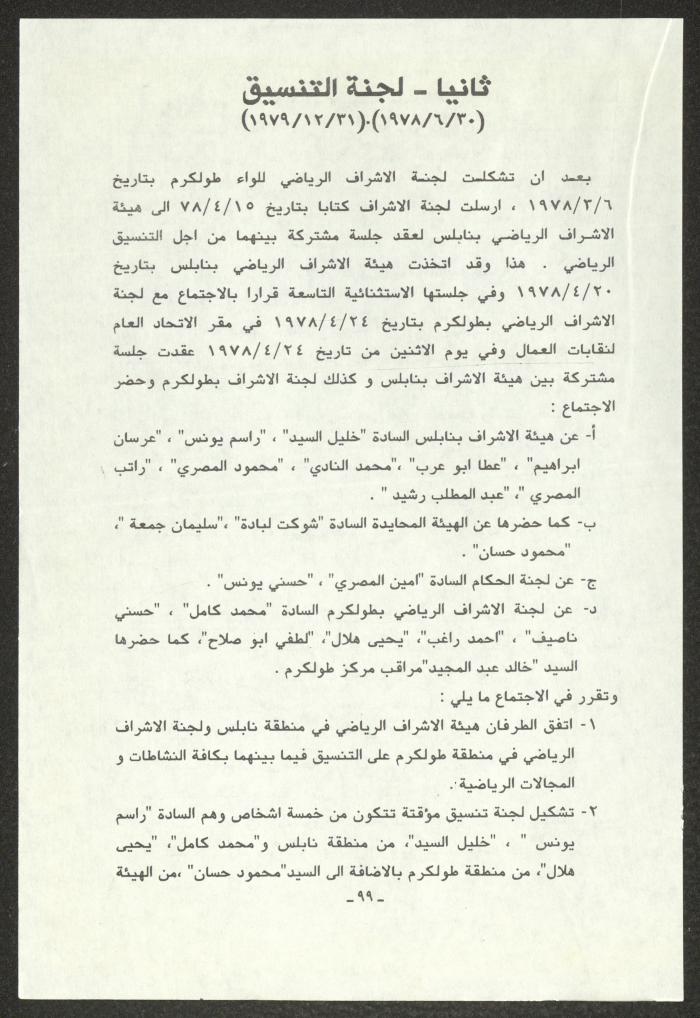 ثانيا - لجنة التنسيق
(١٩٧٨/٦/٣٠).(١٩٧٩/١٢/٣١)
بعد ان تشكلت لجنة الاشراف الرياضي للواء طولكرم بتاريخ
١٩٧٨/٣/٦ ، ارسلت لجنة الاشراف كتابا بتاريخ ٧٨/٤/١٥ الى هيئة
الاشراف الرياضي بنابلس لعقد جلسة مشتركة بينهما من اجل التنسيق
الرياضي . هذا وقد اتخذت هيئة الاشراف الرياضي بنابلس بتاريخ
١٩٧٨/٤/٢٠ وفي جلستها الاستثنائية التاسعة قرارا بالاجتماع مع لجنة
الاشراف الرياضي بطولكرم بتاريخ ١٩٧٨/٤/٢٤ في مقر الاتحاد العام
لنقابات العمال وفي يوم الاثنين من تاريخ ١٩٧٨/٤/٢٤ عقدت جلسة
مشتركة بين هيئة الاشراف بنابلس و كذلك لجنة الاشراف بطولكرم وحضر
الاجتماع :
أ- عن هيئة الاشراف بنابلس السادة "خليل السيد" ، "راسم يونس" ، "عرسان
ابراهيم" ، "عطا ابو عرب" ،"محمد النادي" ، "محمود المصري" ، "راتب
المصري "، "عبد المطلب رشيد " .
ب- كما حضرها عن الهيئة المحايدة السادة "شوكت لبادة" ،"سليمان جمعة "،
"محمود حسان" .
ج- عن لجنة الحكام السادة "امين المصري" ، "حسني يونس" .
د- عن لجنة الاشراف الرياضي بطولكرم السادة "محمد كامل" ، "حسني
ناصيف" ، "احمد راغب"، "يحيى هلال"، "لطفي ابو صلاح"، كما حضرها
السيد "خالد عبد المجيد"مراقب مركز طولكرم .
وتقرر في الاجتماع ما يلي :
١- اتفق الطرفان هيئة الاشراف الرياضي في منطقة نابلس ولجنة الاشراف
الرياضي في منطقة طولكرم على التنسيق فيما بينهما بكافة النشاطات و
المجالات الرياضية .
٢- تشكيل لجنة تنسيق مؤقتة تتكون من خمسة اشخاص وهم السادة "راسم
يونس " ، "خليل السيد"، من منطقة نابلس و"محمد كامل"، "يحيى
هلال"، من منطقة طولكرم بالاضافة الى السيد"محمود حسان" ،من الهيئة
- ٩٩ -